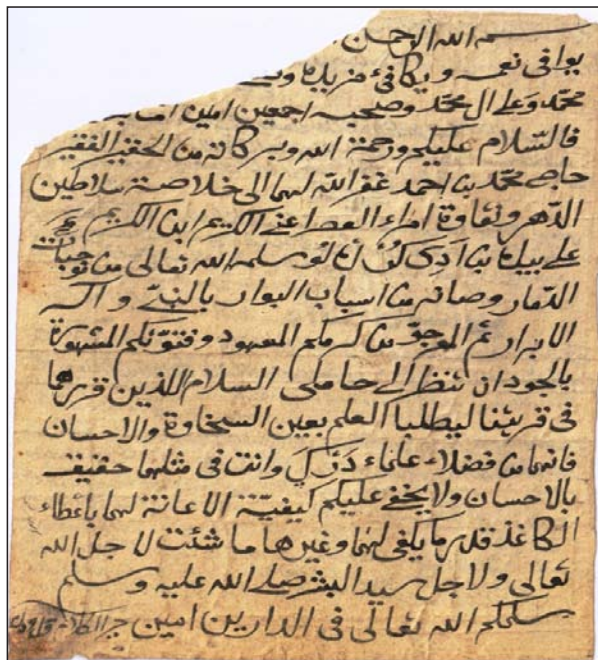 بسم الله الرحمن
يوافى نعمه ويكافئ مزيده
محمد وعلى ال محمد وصحبه اجمعين امين اما بعد
فالسلام عليكم ورحمة الله وبركاته من الحقير الفقير
حاجى محمد بن احمد غفر الله لهما الى خلاصة سلاطين
الدهر ونقاوة امراء العصر اعنى الكريم ابن الكريم
على بيك بن سلمه الله تعالى من توجبات
الدمار وصانه من اسباب البوار بالنبى واله
الابرار ثم المرجو من كرمكم المعهود وفتوتكم المشهورة
بالجود ان تنظر الى حاملى السلام اللذين قررها
فى قريتنا ليطلبا العلم بعين السخاوة والاحسان
فانهما من فضلاء علماء وانت فى مثلهما حقيق
بالاحسان ولا يخفى عليكم كيفية الاعانة لهما باعطاء
الكاغذ قدر ما يكفى لهما وغيرها ما شئت لاجل الله
تعالى ولاجل سيد البشر صلى الله عليه وسلم
سلمكم الله تعالى فى الدارين امين